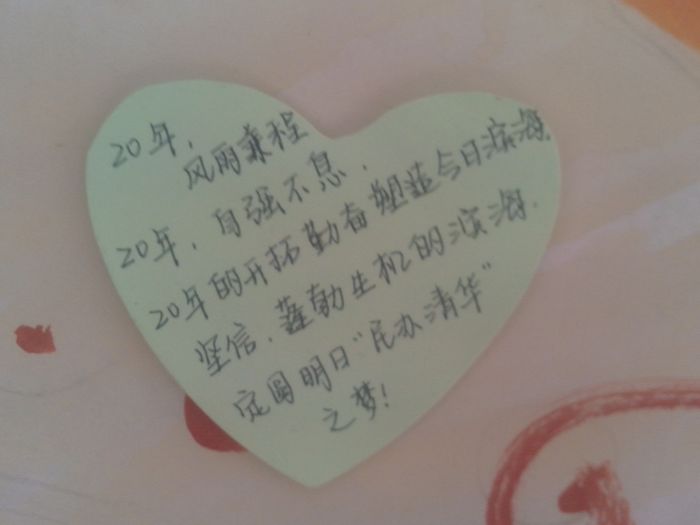 20年,
风雨兼程
20年,自强不息.
20年的开拓勤奋塑造今日滨海
坚信.蓬勃生机的滨海.
定圆明日"民办清华"
之梦!